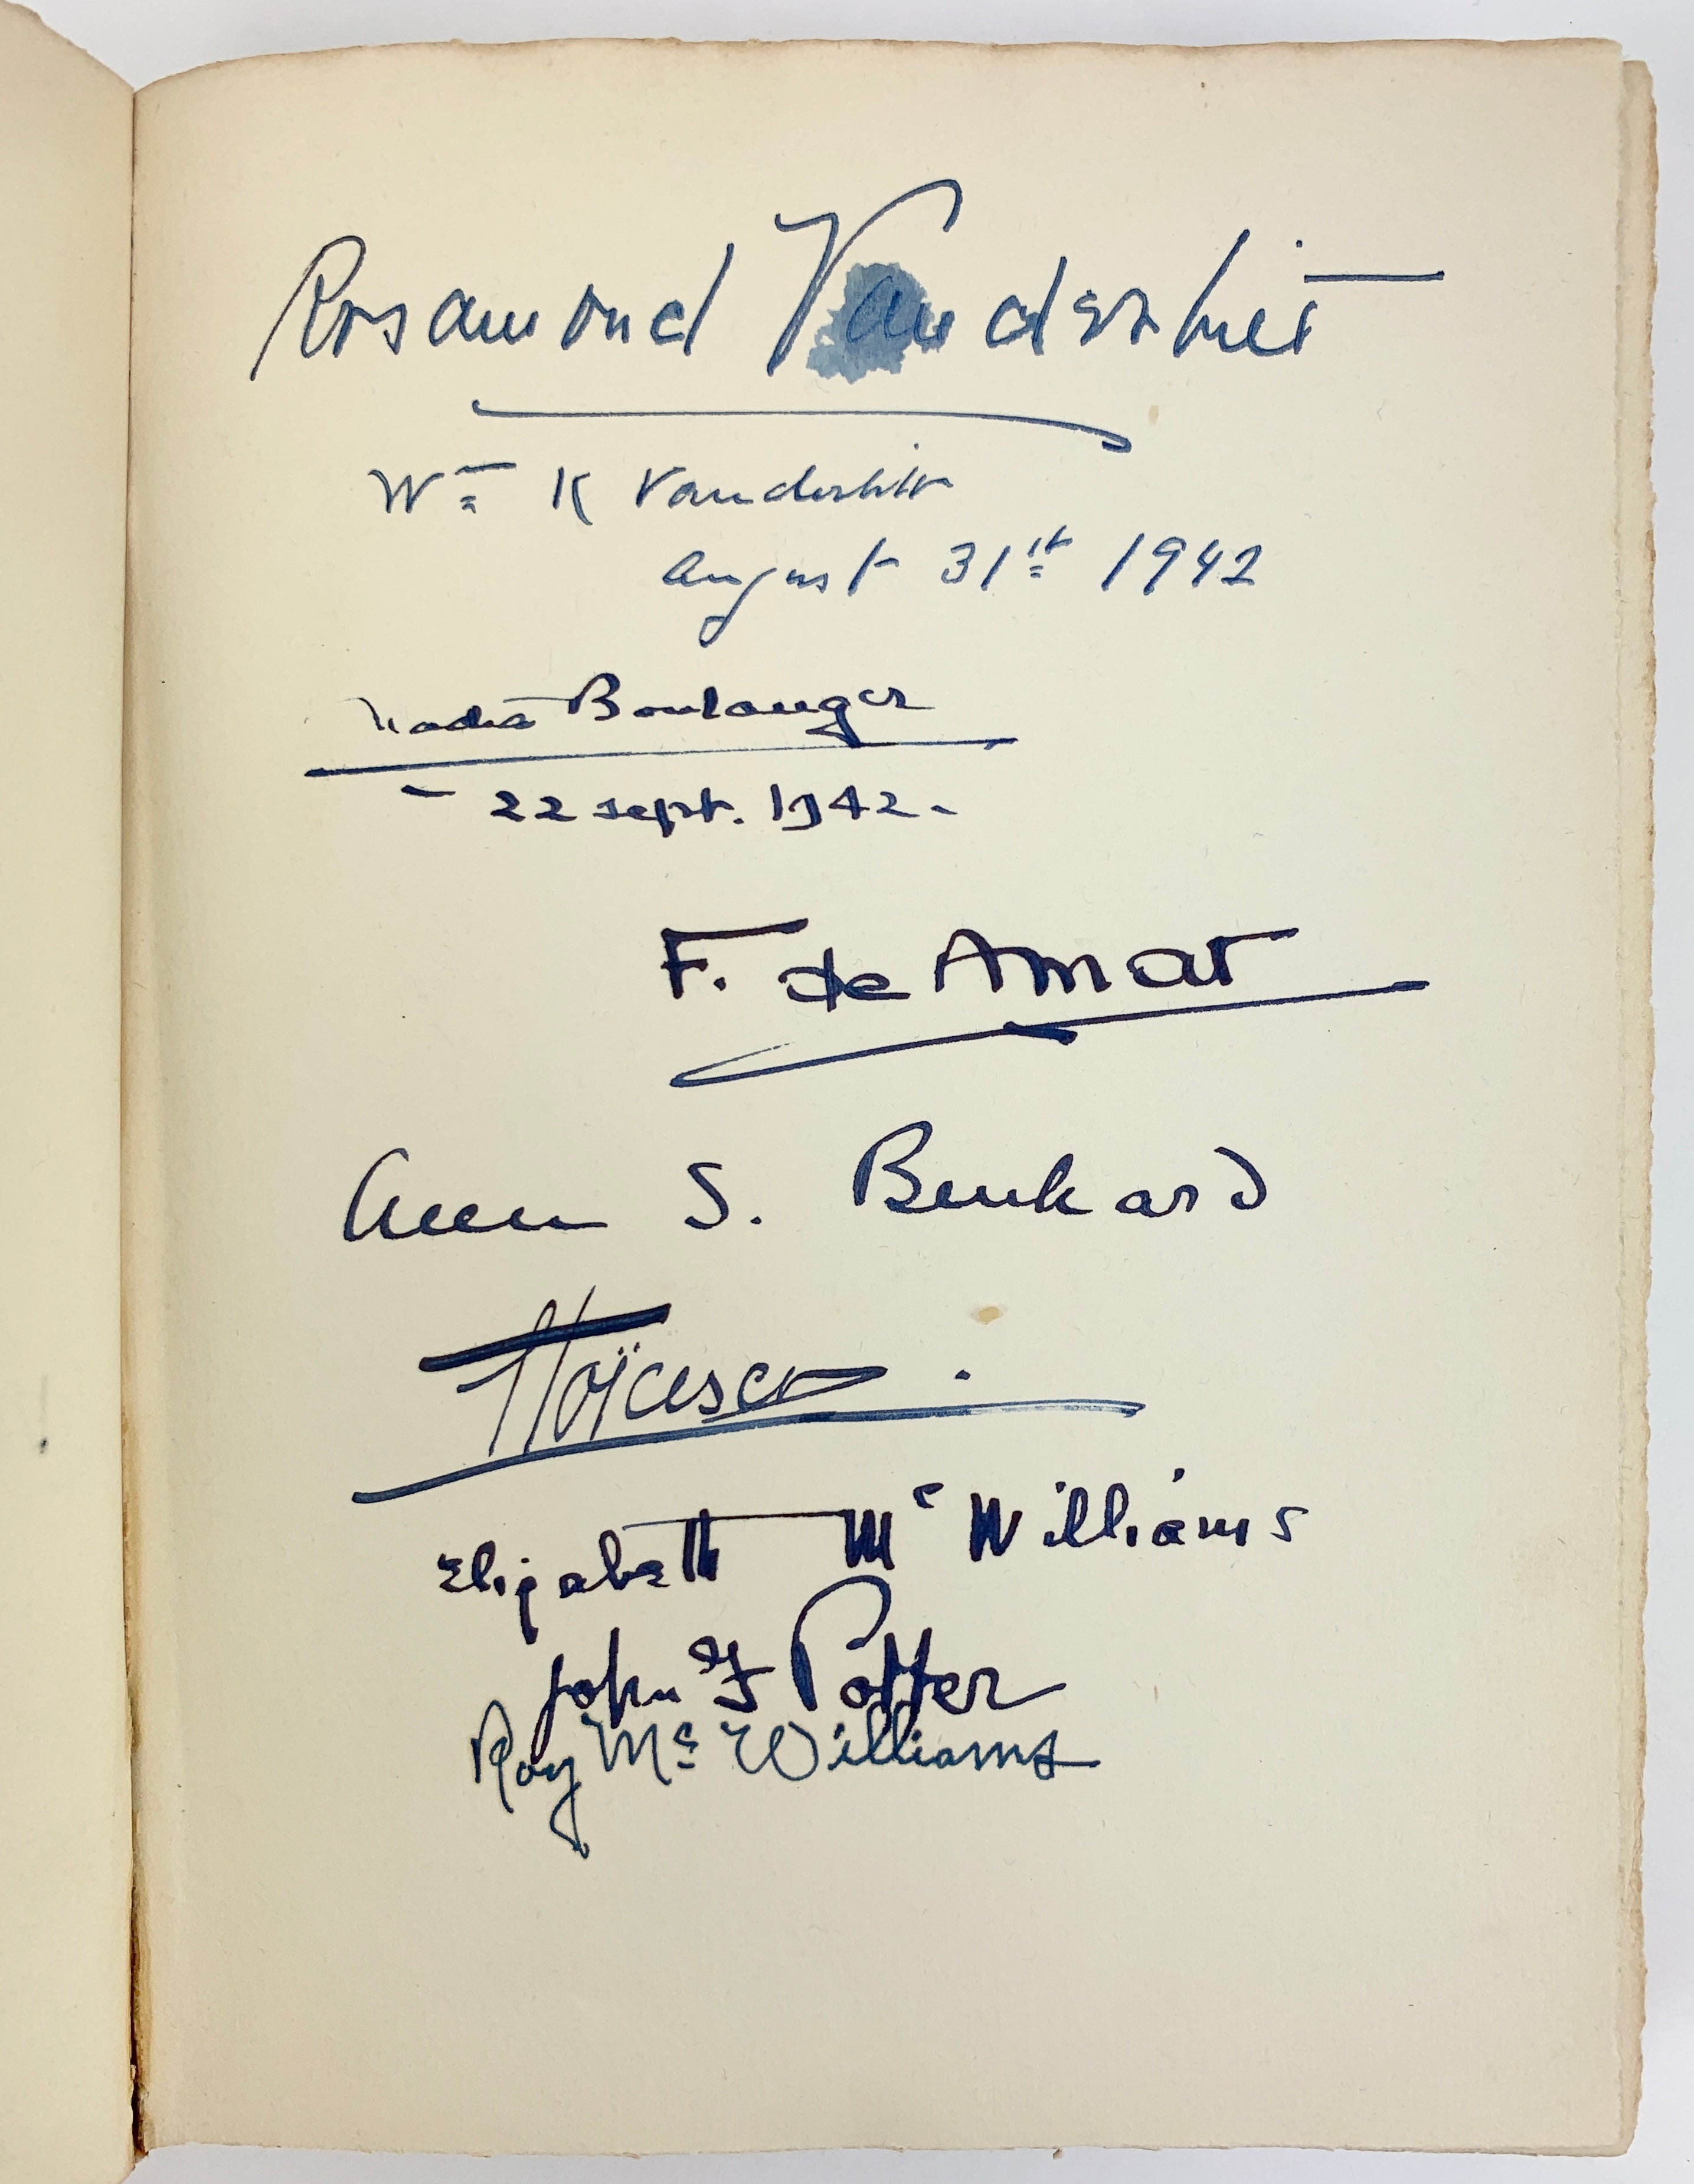 Rosamond Vanderbilt
Wm K Vanderbilt
August 31st 1942
Nadia Boulanger
- 22 sept. 1942 -
F. de Amat
Ann S. Benkard
Elizabeth Mc Williams
John F Potter
Roy Mc Williams